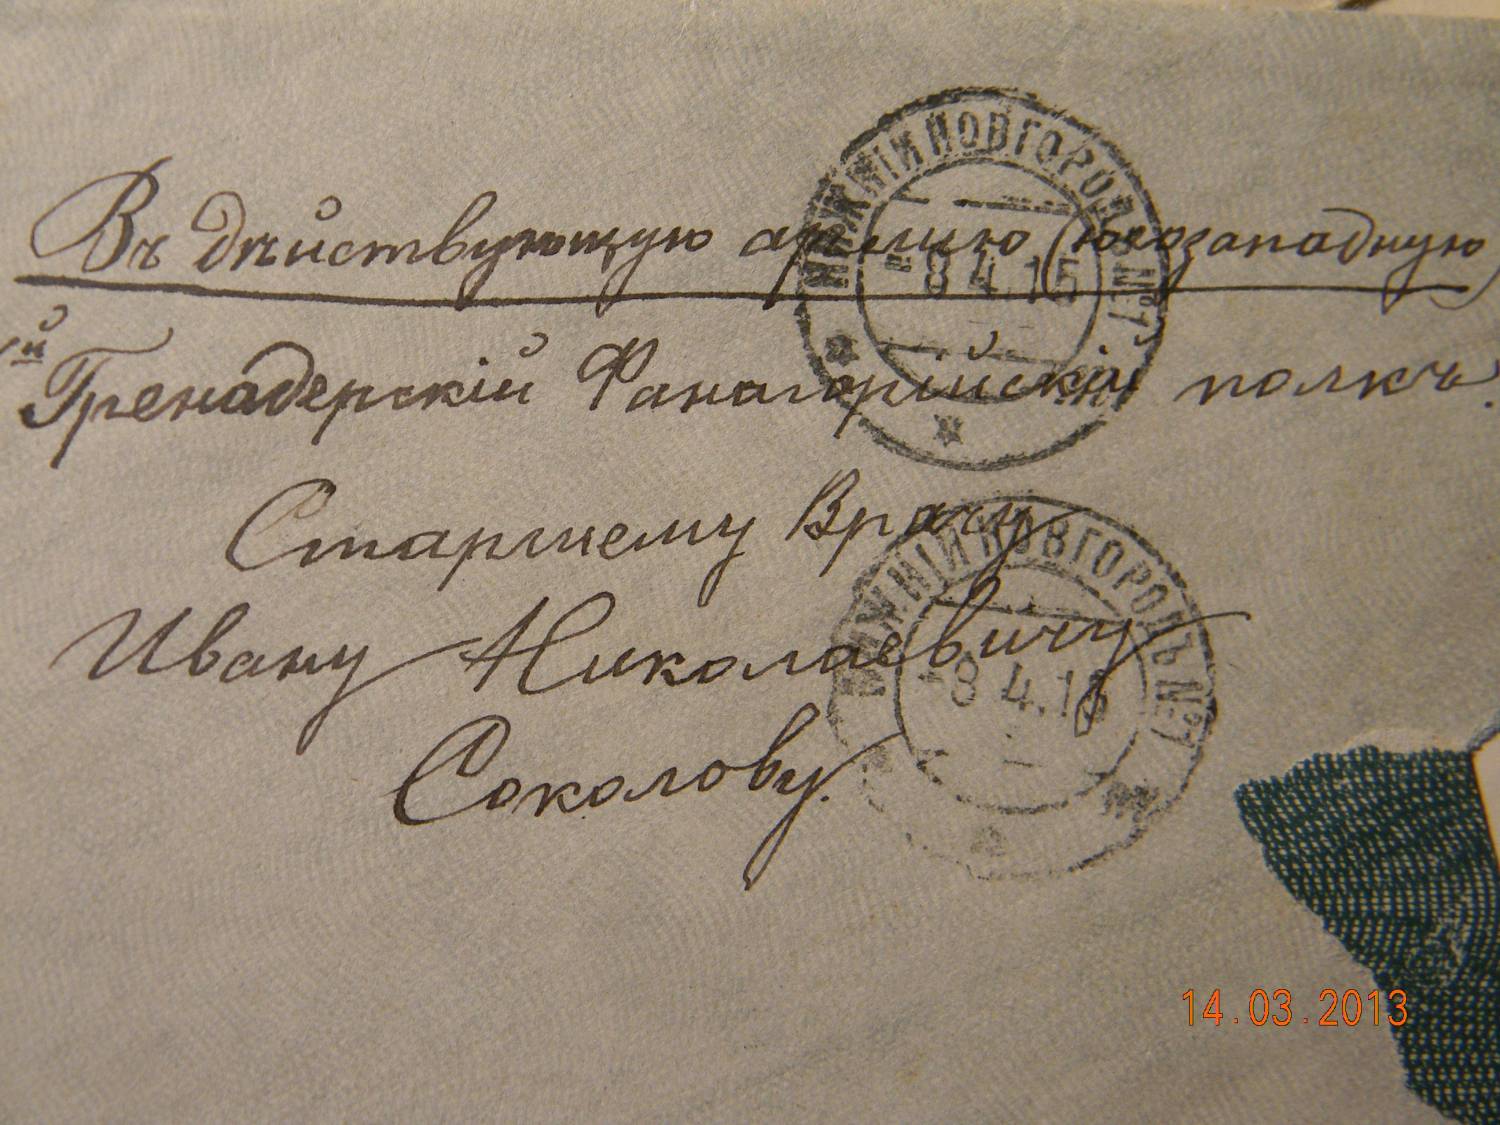 Въ дѣйствующую армію (югозападную)
й Гренадерскій Фанагорійскій полкъ.
Старшему Врачу
Ивану Николаевичу
Соколову.
НИЖНІЙ НОВГОРОДЪ №1
-8 4.15
НИЖНІЙ НОВГОРОДЪ №1
-8 4.15
14.03.2013